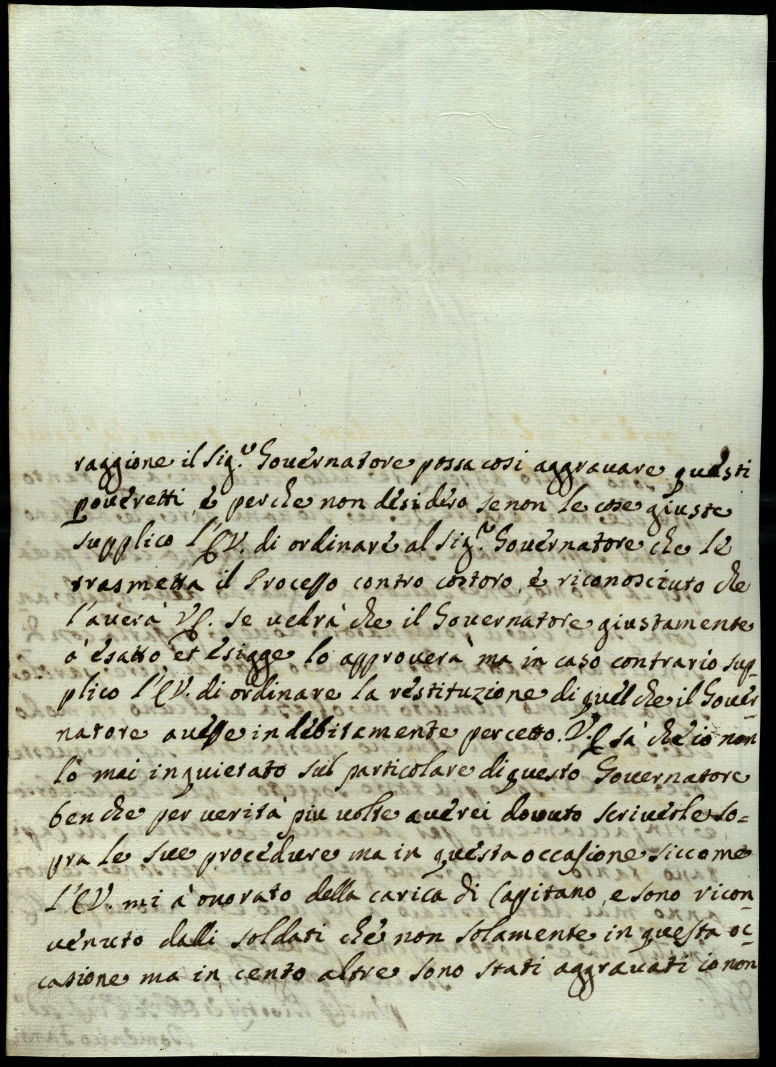 raggione il Sig.r Governatore possa così aggravare questi
poveretti, è perche non desidero se non le cose giuste
supplico l'EV. di ordinare al Sig.r Governatore che le
trasmetta il Processo contro costoro, è riconosciuto che
l'averà VE. se vedrà che il Governatore giustamente
à esatto et esigge lo approverà ma in caso contrario sup-
plico l'EV. di ordinare la restituzione di quel che il Gover-
natore avesse indebitamente percetto. VE sà che io non
lò mai inquietato sul particolare di questo Governatore
ben che per verità piu volte averei dovuto scriverle so=
pra le sue procedure ma in questa occasione siccome
l'EV. mi à onorato della carica di Capitano, e sono ricon-
venuto dalli soldati che non solamente in questa oc-
casione ma in cento altre sono stati aggravati io non